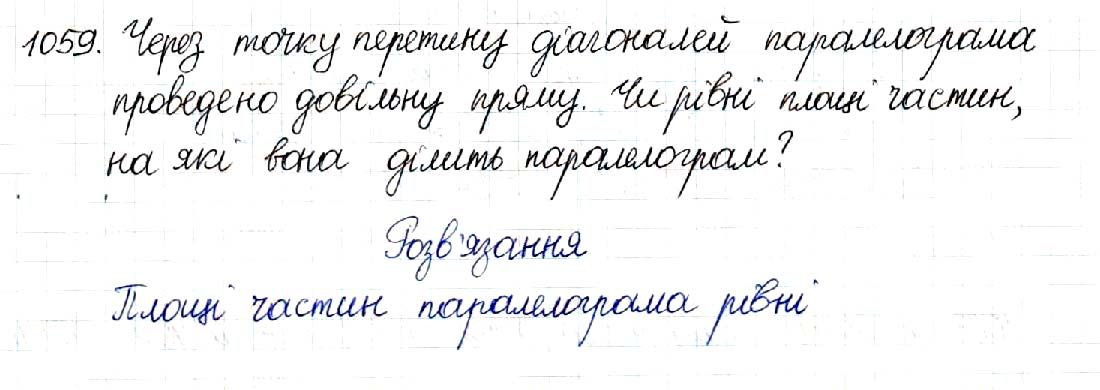 1059. Через точку перетину діагоналей паралелограма
проведено довільну пряму. Чи рівні площі частин,
на які вона ділить паралелограм?
Розв'язання
Площі частин паралелограма рівні